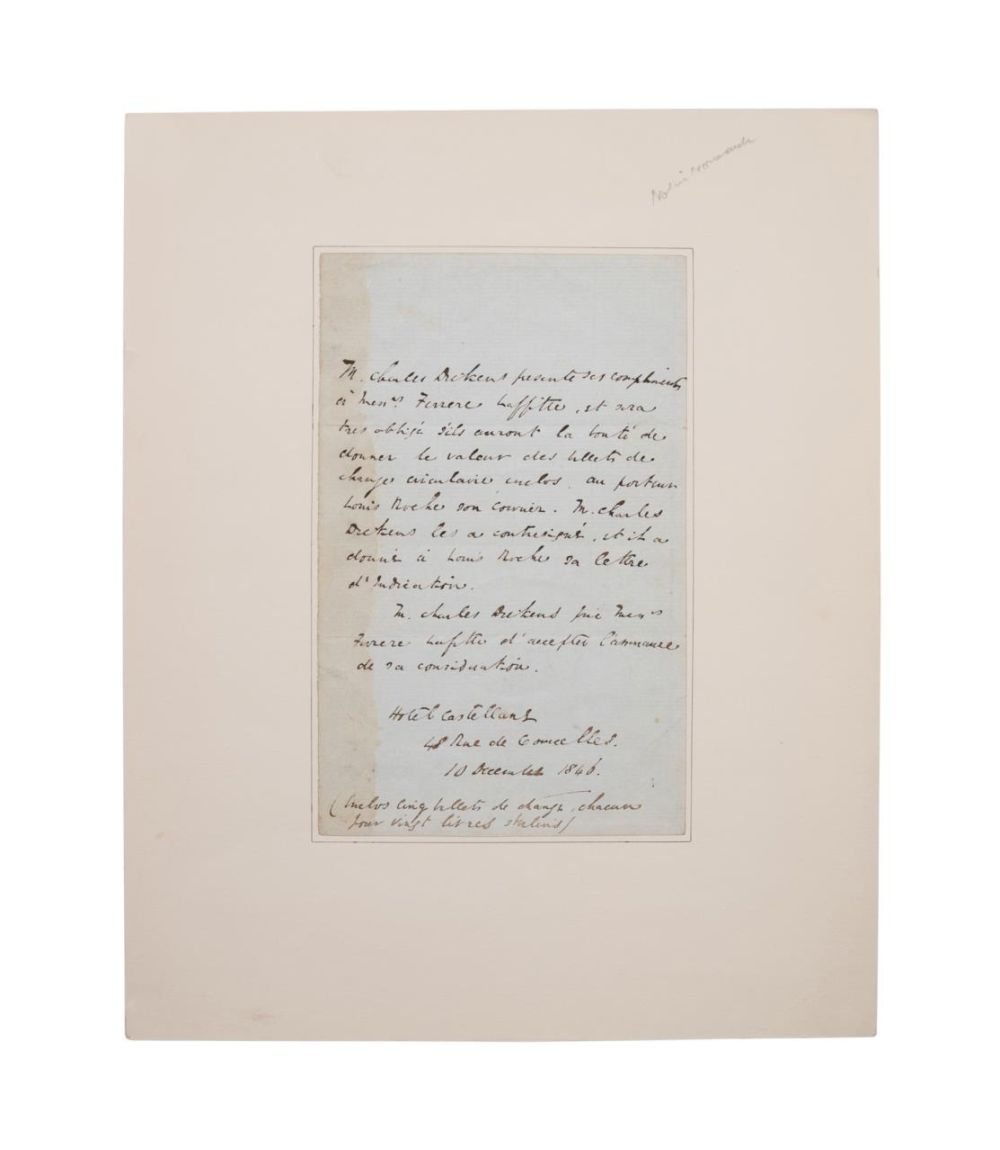 M. Charles Dickens presente ses compliments
à Messrs Ferrere Laffitte, et sera
tres obligé s'ils auront la bonté de
donner le valeur des billets de
change circulaire inclos, au porteur
Louis Roche son courier. M. Charles
Dickens les a contresigné, et il a
donné à Louis Roche sa lettre
d'Indication.
M. Charles Dickens prie Messrs
Ferrere Laffitte d'accepter l'assurance
de sa consideration.
Hotel Castellane
48 Rue de Courcelles.
10 December 1846.
(Inclos cinq billets de change, chacun
pour vingt livres sterling)